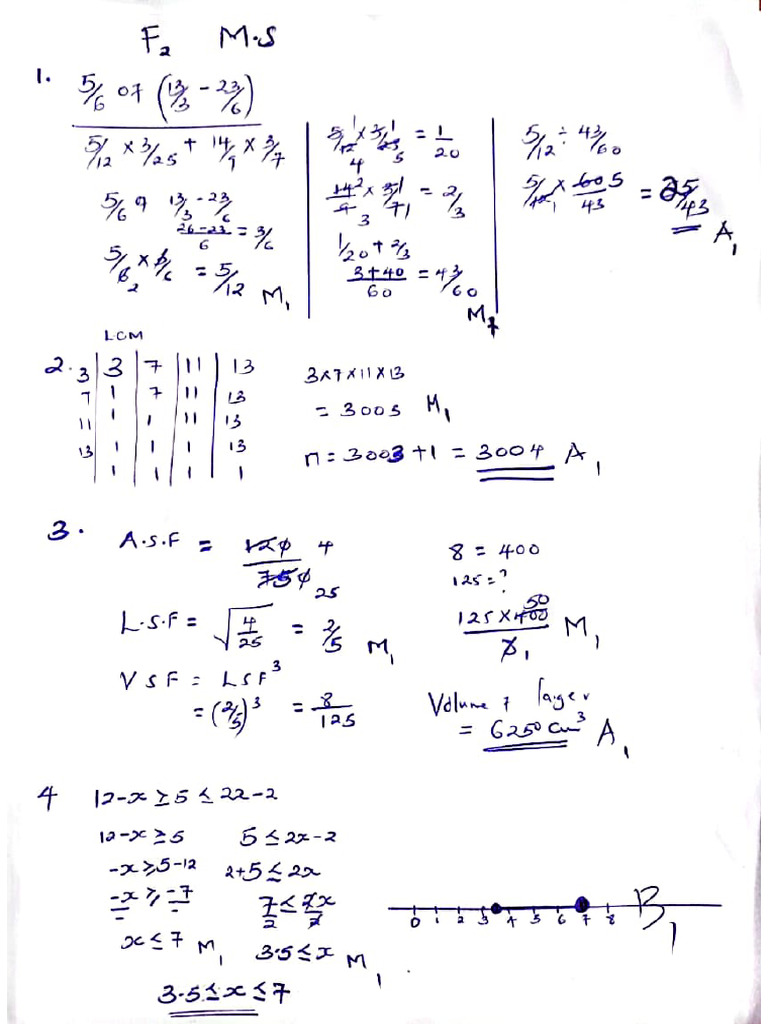 F2 M.S
1.
5/6 of (13/3 - 23/6)
5/12 x 3/25 + 14/9 x 3/7
5/6 of 13/3 - 23/6
26-23/6 = 3/6
5/6 x 3/6 = 5/12 M1
5/12 x 3/25 = 1/20
14/9 x 3/7 = 2/3
1/20 + 2/3
3+40/60 = 43/60
M1
5/12 ÷ 43/60
5/12 x 60/43 = 25/43
A1
LCM
2. 3 | 3 | 7 | 11 | 13
7 | 1 | 7 | 11 | 13
11 | 1 | 1 | 11 | 13
13 | 1 | 1 | 1 | 13
1 | 1 | 1 | 1
3x7x11x13
= 3003 M1
n = 3003 + 1 = 3004 A1
3.
A.S.F = 120/750 4/25
L.S.F = √4/25 = 2/5 M1
VSF = LSF³
= (2/5)³ = 8/125
8 = 400
125 = ?
125 x 400/8 50 1 M1
Volume of lager
= 6250 cm³ A1
4 12-x ≥ 5 ≤ 2x-2
12-x ≥ 5
-x ≥ 5-12
-x ≥ -7
x ≤ 7 M1
5 ≤ 2x-2
2+5 ≤ 2x
7/2 ≤ 2x/2
3.5 ≤ x M1
3.5 ≤ x ≤ 7
0 1 2 3 4 5 6 7 8
B1